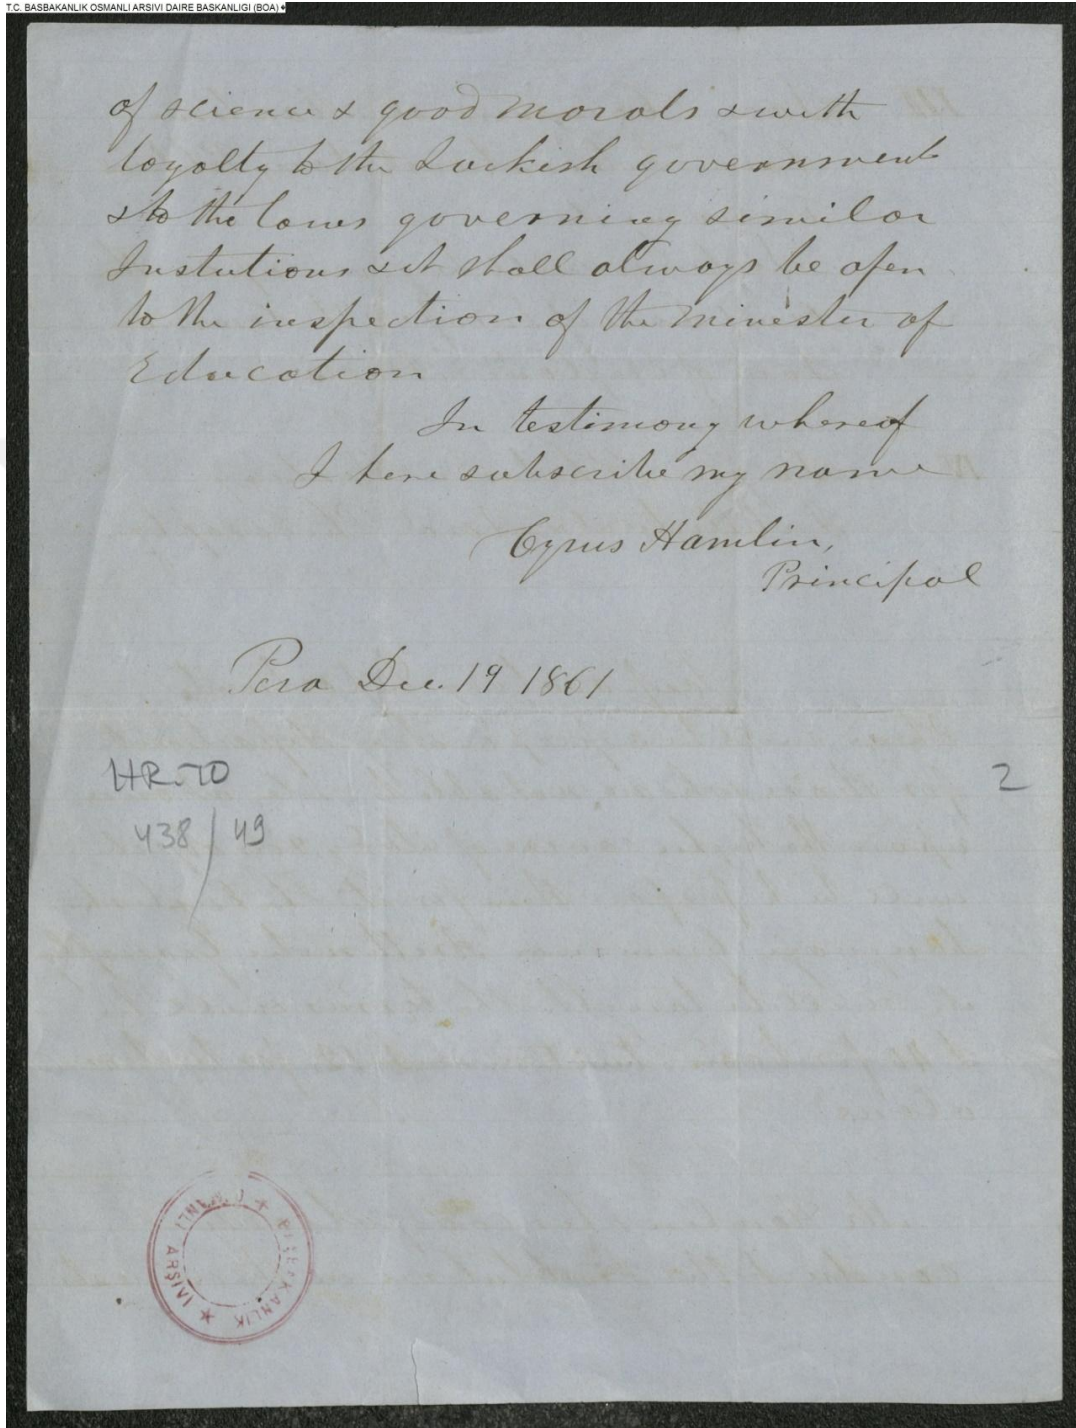 T.C. BASBAKANLIK OSMANLI ARSIVI DAIRE BASKANLIGI (BOA)
of science & good morals & with
loyalty to the Turkish government
& to the laws governing similar
Instutions & it shall always be open
to the inspection of the Minister of
Education
In testimony whereof
I here subscribe my name
Cyrus Hamlin,
Principal
Pera Dec. 19 1861
HR-TO
2
438/49
BAŞBAKANLIK ★ OSMANLI ARŞİVİ ★